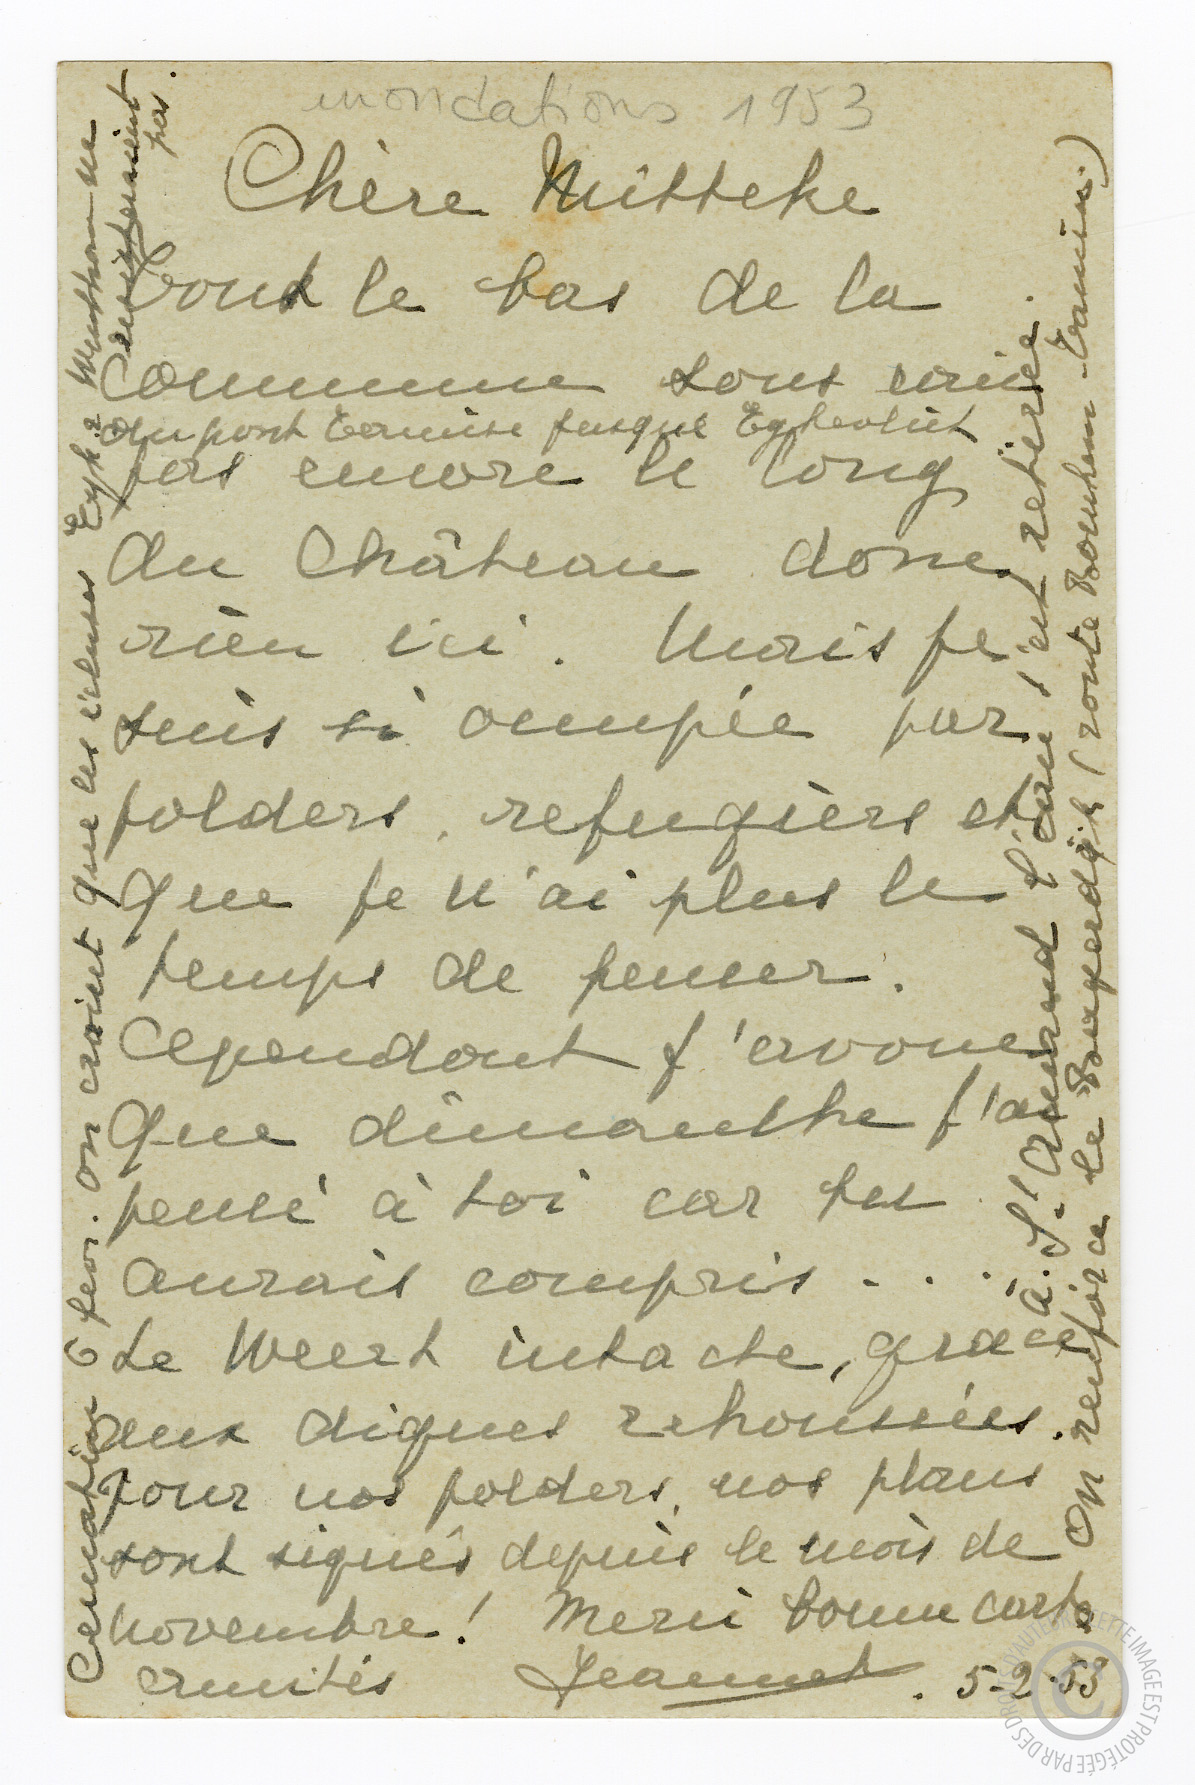 inondations 1953
Chère Mitteke
Tout le bas de la
commune sous eau
du pont Tamise jusque Eykevliet
pas encore le long
du Château donc
rien ici. Mais je
suis si occupée par
polders, refugiers et
que je n'ai plus le
temps de penser.
Cependant j'avoue
que dimanche j'ai
pensé à toi car tu
aurais compris...
Le Weert intacte, grâce
aux digues rehoussées.
Pour nos polders, nos plans
sont signés depuis le mois de
novembre! Merci bonne carte
amitiés Jeanne. 5-2-53
à St Amand l'eau s'est retirée.
On renforce le Bogerdijk (route Bornhem-Tamise.)
Ce matin 6 fevr. On craint que les écluses Eyk. &
ne
maintiennent
pas.
CETTE IMAGE EST PROTÉGÉE PAR DES DROITS D'AUTEUR
©